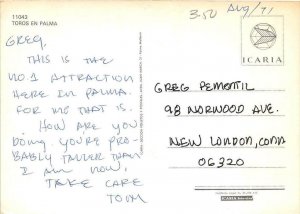 11043
TOROS EN PALMA
3.50 Aug/71
GREG,
THIS IS THE
NO.1 ATTRACTION
HERE IN PALMA.
FOR ME THAT IS.
HOW ARE YOU
DOING. YOU'RE PRO-
BABLY TALLER THAN
I AM NOW,
TAKE CARE
TOM
ICARIA
GREG
98 NORWOOD AVE.
NEW LONDON, CONN
06320
ICARIA